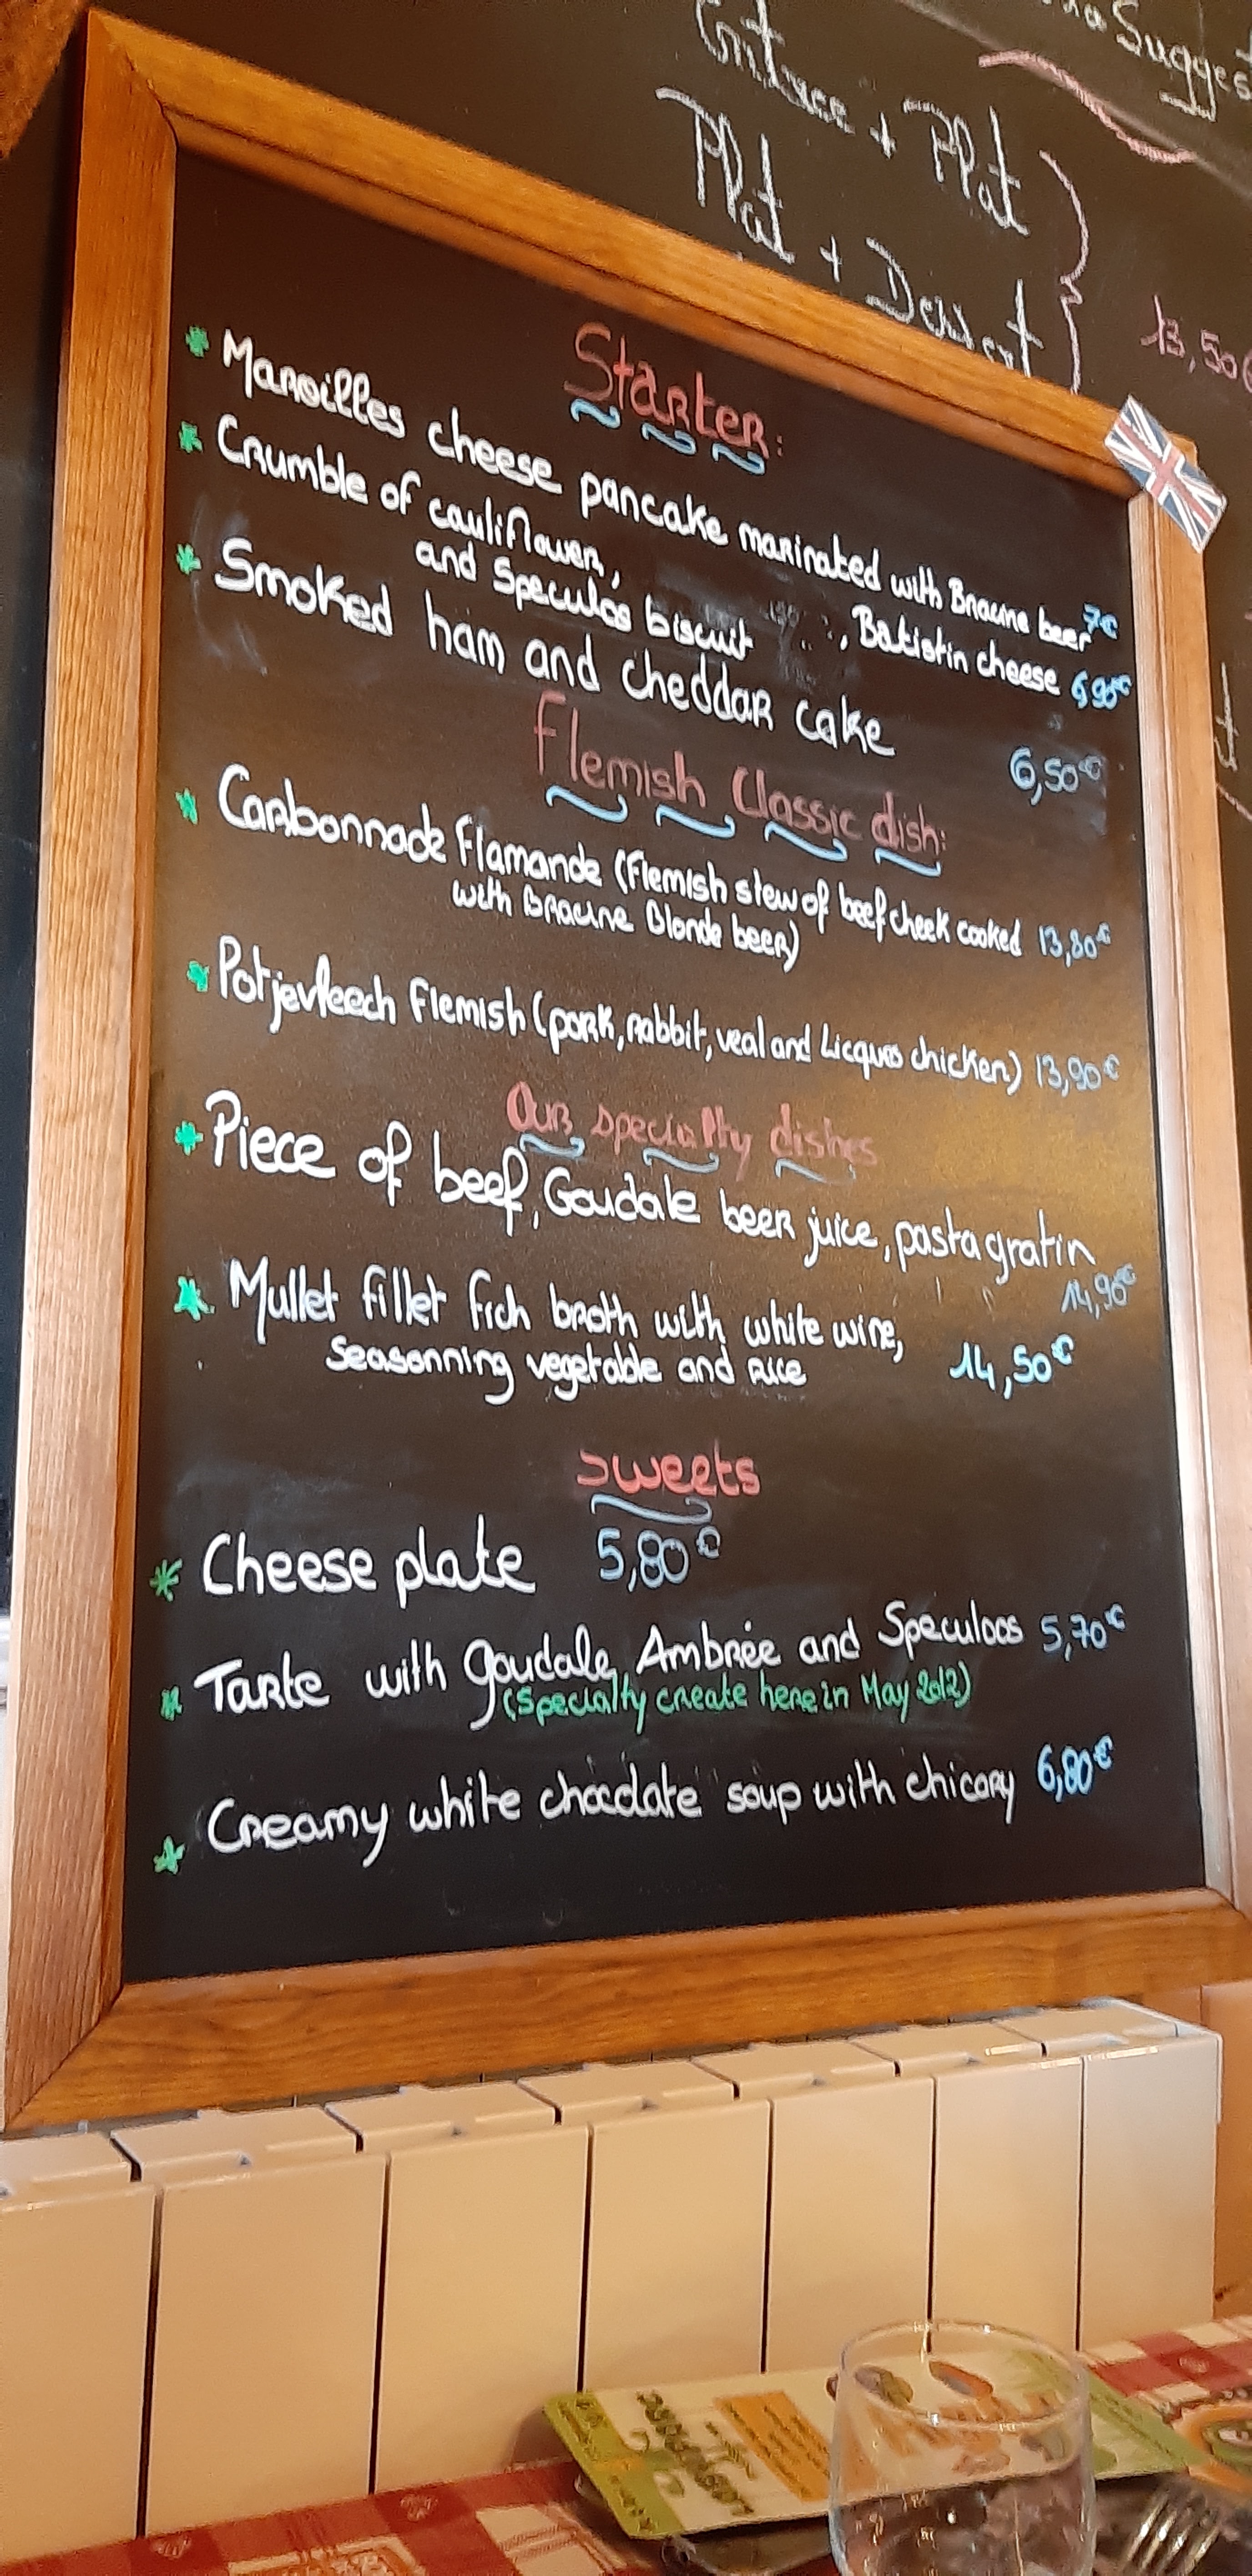 Suggest
Entree + Plat
Plat + Dessert
13,50€
Starter:
* Maroilles cheese pancake marinated with Bracine beer 7€
* Crumble of cauliflower, , Batistin cheese 6,90€
and Speculos biscuit
* Smoked ham and cheddar cake 6,50€
Flemish Classic dish:
* Carbonnade Flamande (Flemish stew of beef cheek cooked 13,80€
with Bracine Blonde beer)
* Potjevleech Flemish (pork, rabbit, veal and Licques chicken) 13,90€
Our specialty dishes
* Piece of beef, Goudale beer juice, pasta gratin
14,90€
* Mullet fillet fich broth with white wine,
Seasonning vegetable and rice 14,50€
Sweets
* Cheese plate 5,80€
* Tarte with goudale, Ambrée and Speculoos 5,70€
(Specialty create here in May 2012)
* Creamy white chocolate soup with chicory 6,80€